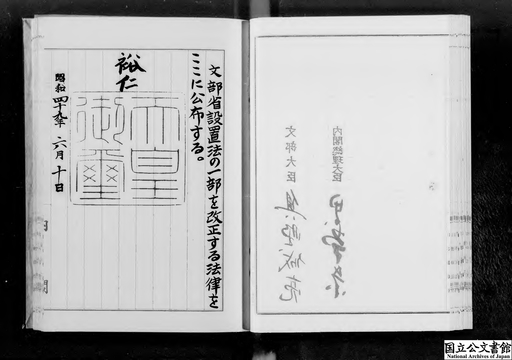 文部省設置法の一部を改正する法律を
ここに公布する。
裕仁
天皇
御璽
昭和四十九年六月十日
内閣
内閣総理大臣
文部大臣
国立公文書館
National Archives of Japan